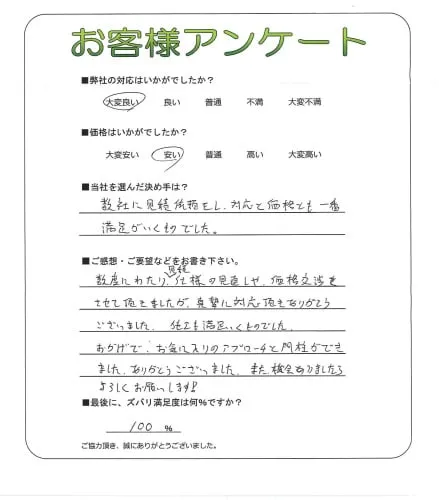 お客様アンケート
■弊社の対応はいかがでしたか？
大変良い 良い 普通 不満 大変不満
■価格はいかがでしたか？
大変安い 安い 普通 高い 大変高い
■当社を選んだ決め手は？
数社に見積依頼をし、対応と価格とも一番
満足がいくものでした。
■ご感想・ご要望などをお書き下さい。
数度にわたり、見積、仕様の見直しや、価格交渉を
させて頂きましたが、真摯に対応頂きありがとう
ございました。 施工も満足いくものでした。
おかげで、お気に入りのアプローチと門柱ができ
ました。ありがとうございました。また機会ありましたら
よろしくお願いします!
■最後に、ズバリ満足度は何％ですか？
100 %
ご協力頂き、誠にありがとうございました。